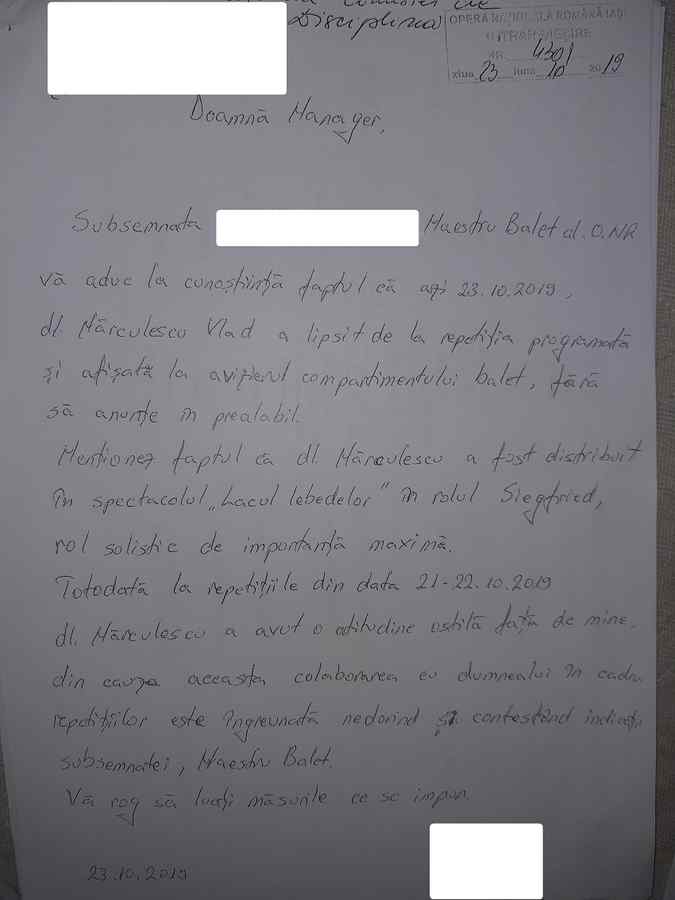 Disciplina
OPERA NAȚIONALĂ ROMÂNĂ IAȘI
INTRARE/IEȘIRE
NR. 4301
ziua 23 luna 10 2019
Doamnă Manager,
Subsemnata Maestru Balet al O.N.R
vă aduc la cunoștiință faptul că azi 23.10.2019,
dl. Mărculescu Vlad a lipsit de la repetiția programată
și afișată la avizierul compartimentului balet, fără
să anunțe în prealabil.
Menționez faptul ca dl. Mărculescu a fost distribuit
în spectacolul „Lacul lebedelor" în rolul Siegfried,
rol solistic de importanță maximă.
Totodată la repetițiile din data 21-22.10.2019
dl. Mărculescu a avut o atitudine ostilă față de mine.
din cauza aceasta colaborarea cu dumnealui în cadru
repetițiilor este îngreunată nedorind și contestând indicați
subsemnatei, Maestru Balet.
Vă rog să luați măsurile ce se impun.
23.10.2019